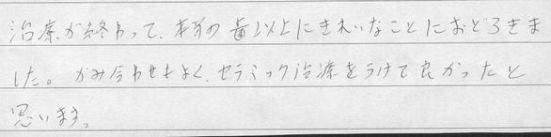 治療が終わって、本物の歯以上にきれいなことにおどろきま
した。かみ合わせもよく、セラミック治療をうけて良かったと
思います。